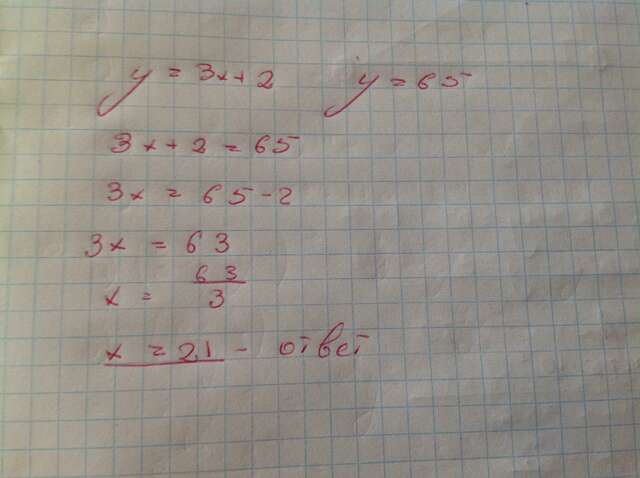 y = 3x + 2 y = 65
3x + 2 = 65
3x = 65 - 2
3x = 63
x = 63/3
x = 21 - ответ